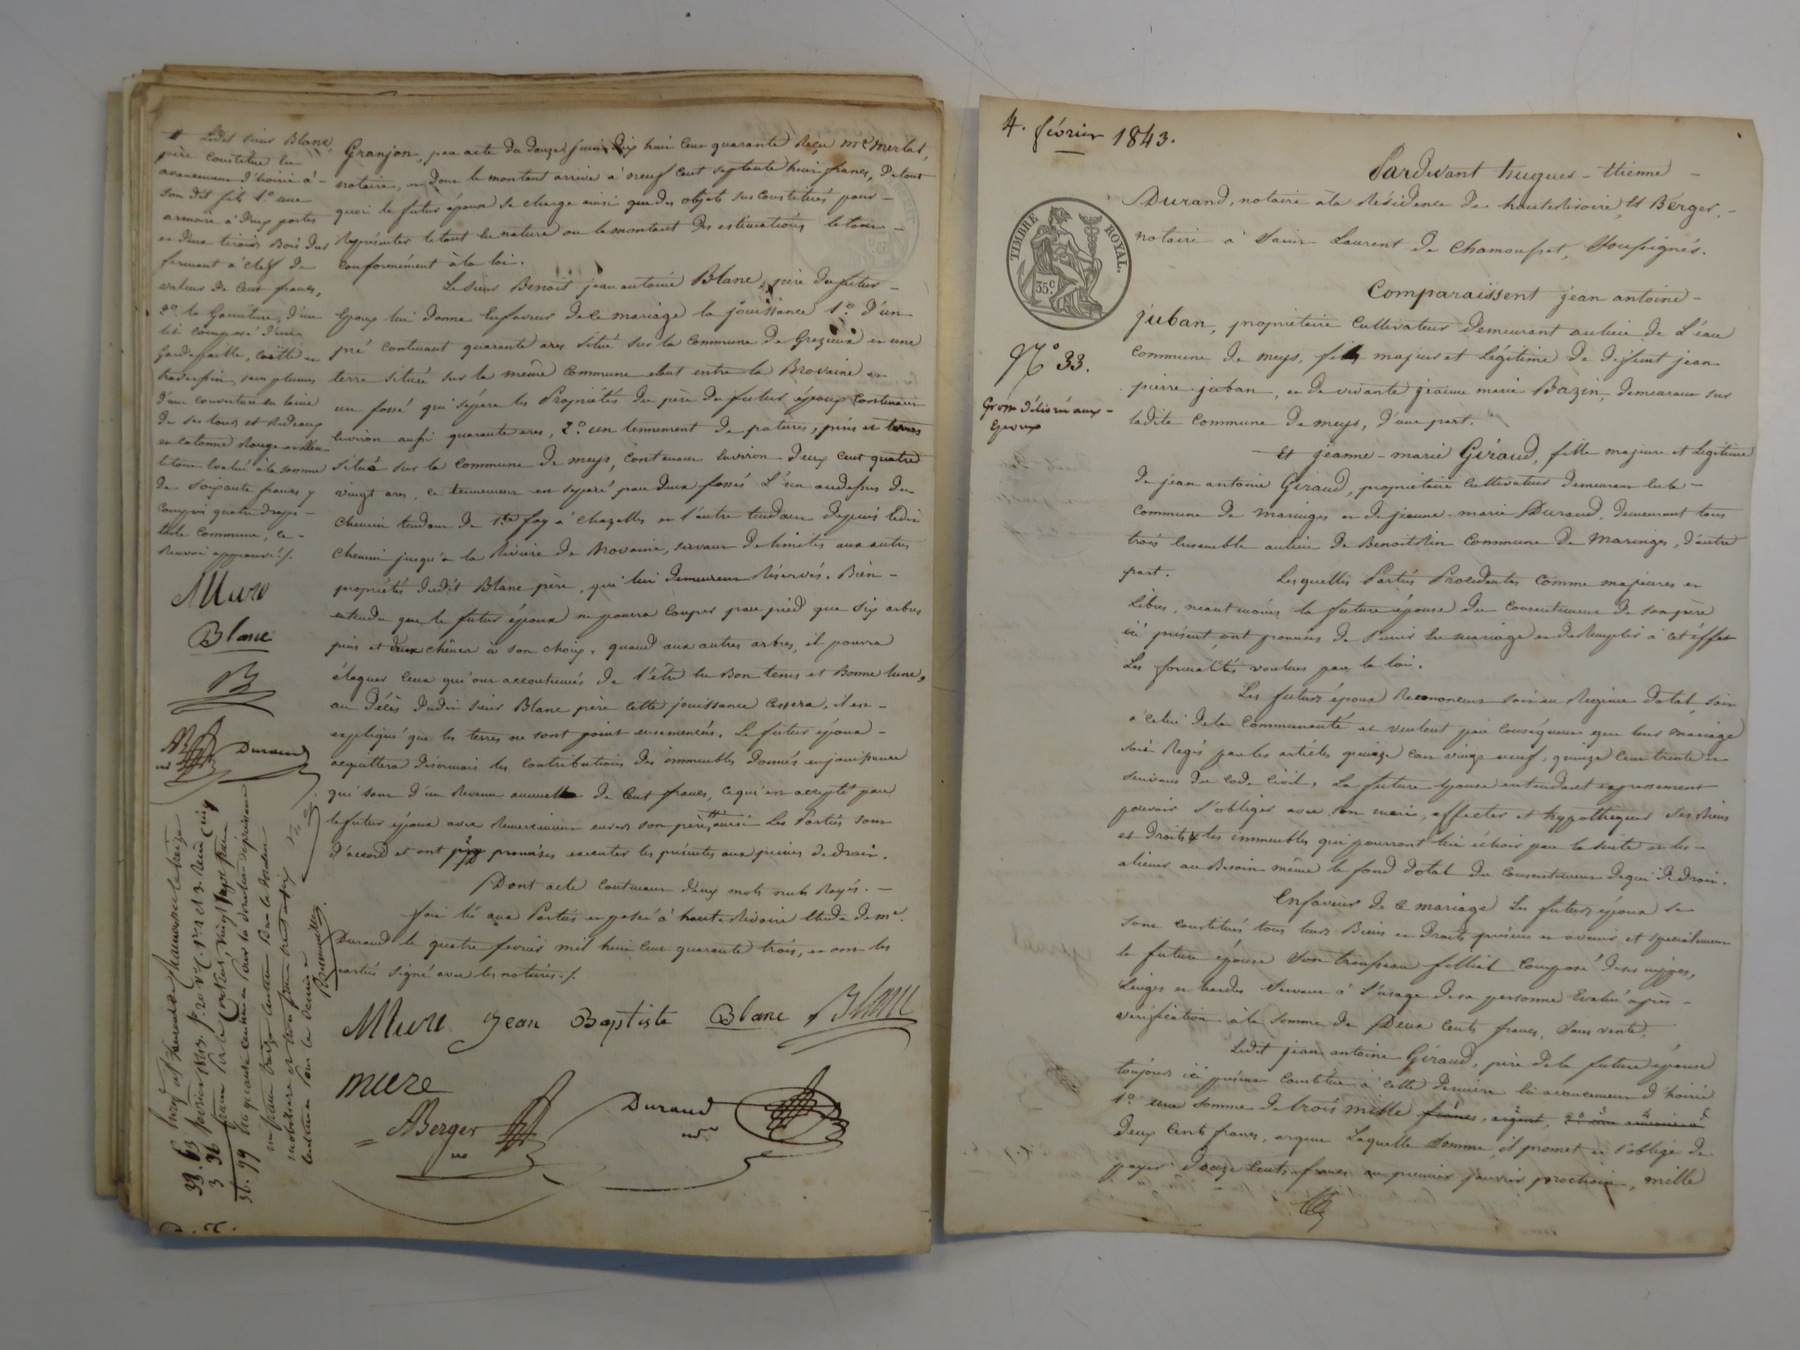 Ledit sieur Blanc
père constitue en
avancement d'hoirie à
son dit fils 1° une
armoire à deux portes
et deux tiroirs Bois dur
fermant à clef de
valeur de Cent francs,
2° la Garniture d'un
lit composé d'une
Gardepaille, coëtte et
traversin, sans plumes
d'une couverture en laine
de ses tours et Rideaux
en cotonne Rouge
le tout évalué à la somme
de soixante francs y
compris quatre draps
toile commune, ce
Renvoi approuvé ./.
Mure
Blanc
B
AB
Durand
Granjon, par acte du douze juin dix huit cent quarante Reçu Me Merlat,
notaire, et donc le montant arrive à neuf cent septante huit francs, De tout
quoi le futur époux se charge ainsi que des objets sus constitués pour
Représenter le tout en nature ou le montant des estimations le tout
conformément à la loi.
Le sieur Benoit jean antoine Blanc, père du futur
Epoux lui donne En faveur de ce mariage la jouissance 1° d'un
pré contenant quarante ares situé sur la commune de Grezieux et une
terre située sur la même commune étant entre la Brovaine et
un fossé qui sépare les Propriétés du père du futur époux contenant
Environ aussi quarante ares, 2° un tennement de patures, pins et terres
situé sur la Commune de meys, contenant Environ deux cent quatre
vingt ares, ce tennement est séparé par deux fossés L'un au dessus du
chemin tendant de Ste foy à Chazelles et l'autre tendant depuis ledit
chemin jusqu'à la Rivière de Brovaine, servant de limites aux autres
propriétés dudit Blanc père, qui lui demeurent Réservés. Bien
entendu que le futur époux ne pourra couper par pied que six arbres
pins et deux chênes à son choix, quand aux autres arbres, il pourra
élaguer ceux qui ont accoutumés de l'être En Bon tems et Bonne lune,
au Décès dudit sieur Blanc père cette jouissance cessera, il est
expliqué que les terres ne sont point ensemencés. Le futur époux
acquittera désormais les contributions des immeubles donnés en jouissance
qui sont d'un Revenu annuel de Cent francs, ce qui est accepté par
le futur époux avec Remerciement envers son père, ainsi Les Parties sont
d'accord et ont promises executer les présentes aux peines de droit.
Dont acte Contenant deux mots nuls Rayés.
fait lu aux Parties et passé à hauterivoire Etude de me
Durand le quatre fevrier mil huit cent quarante trois, et ont les
parties signé avec les notaires ./.
Mure Jean Baptiste Blanc Blanc
mure
ABerger
Durand
33. 63
3 36
36. 99
4. février 1843.
TIMBRE ROYAL.
35c
N° 33.
Grosse délivrée aux
Epoux
Pardevant hugues - Etienne
Durand, notaire à la Résidence de hauterivoire, Et Berger,
notaire à Saint Laurent de Chamousset, soussignés.
Comparaissent jean antoine
juban, propriétaire Cultivateur demeurant au lieu de L'eau
commune de meys, fils majeur et Légitime de défunt jean
pierre juban, et de vivante jeanne marie Bazin, demeurant sur
ladite commune de meys, d'une part.
Et jeanne-marie Giraud, fille majeure et Légitime
de jean antoine Giraud, propriétaire Cultivateur demeurant en la
commune de maringes et de jeanne-marie Durand, demeurant tous
trois Ensemble au lieu de Benoitlin commune de Maringes, d'autre
part. Lesquelles Parties Procédantes comme majeures et
Libres, néantmoins la future épouse du Consentement de son père
ici présent ont promises de s'unir En mariage et de Remplir à cet effet
Les formalités voulues par la loi.
Les futurs époux Renoncent soit au Regime dotal soit
à celui de la Communauté et veulent par conséquent que leur mariage
soit Régis par les articles quinze cent vingt neuf, quinze cent trente et
suivans du code Civil. La future épouse entendant expressement
pouvoir s'obliger avec son mari, affecter et hypothequer ses Biens
et Droits & les immeubles qui pourront lui échoir par la suite et les
aliener au Besoin même le fond dotal du Consentement de qui de droit.
En faveur de ce mariage Les futurs époux se
sont constitués tous leurs Biens et Droits présens et avenir et specialement
la future épouse son trousseau fillial composé de ses nippes,
Linges et hardes servant à l'usage de sa personne Evalué après
vérification à la somme de Deux Cents francs, sans vente.
Ledit jean antoine Giraud, père de la future épouse
toujours ici présent Constitue à cette dernière En avancement d'hoirie
1° une somme de trois mille francs, argent,
deux Cents francs, argent Laquelle somme, il promet et s'oblige de
payer Douze Cents francs au premier janvier prochain, mille